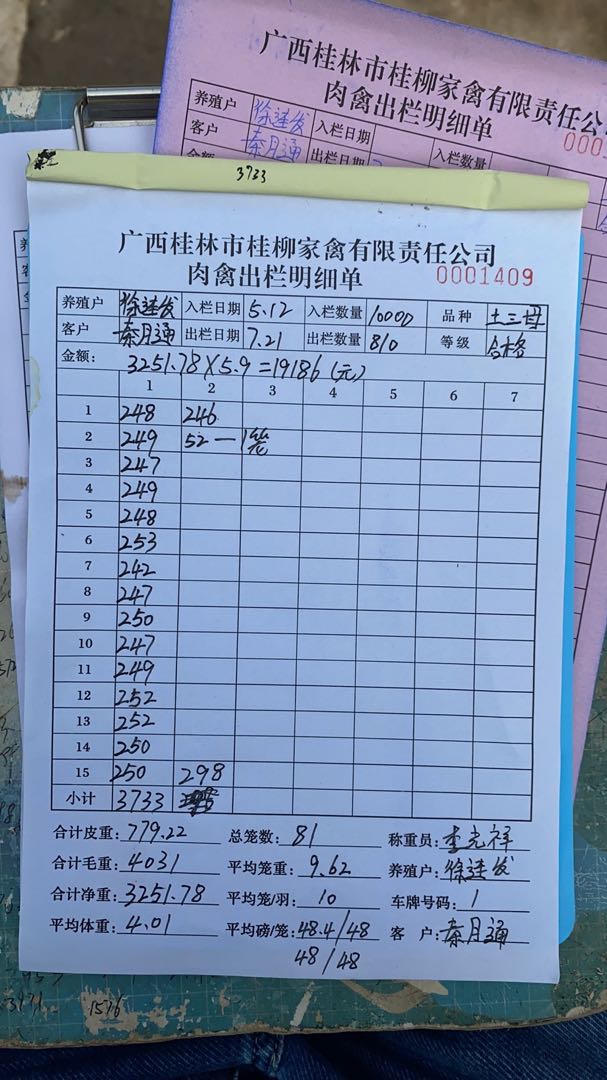 广西桂林市桂柳家禽有限责任公司
肉禽出栏明细单
000
养殖户 徐建发 入栏日期 入栏数量
客户 秦月通 出栏日期
金额
3733
广西桂林市桂柳家禽有限责任公司
肉禽出栏明细单 0001409
养殖户 徐建发 入栏日期 5.12 入栏数量 10000 品种 土三母
客户 秦月通 出栏日期 7.21 出栏数量 810 等级 合格
金额: 3251.78×5.9=19186(元)
1 2 3 4 5 6 7
1 248 246
2 249 52 — 1笼
3 247
4 249
5 248
6 253
7 242
8 247
9 250
10 247
11 249
12 252
13 252
14 250
15 250 298
小计 3733
合计皮重: 779.22 总笼数: 81 称重员: 李光祥
合计毛重: 4031 平均笼重: 9.62 养殖户: 徐建发
合计净重: 3251.78 平均笼/羽: 10 车牌号码: 1
平均体重: 4.01 平均磅/笼: 48.4/48 客 户: 秦月通
48/48
1576